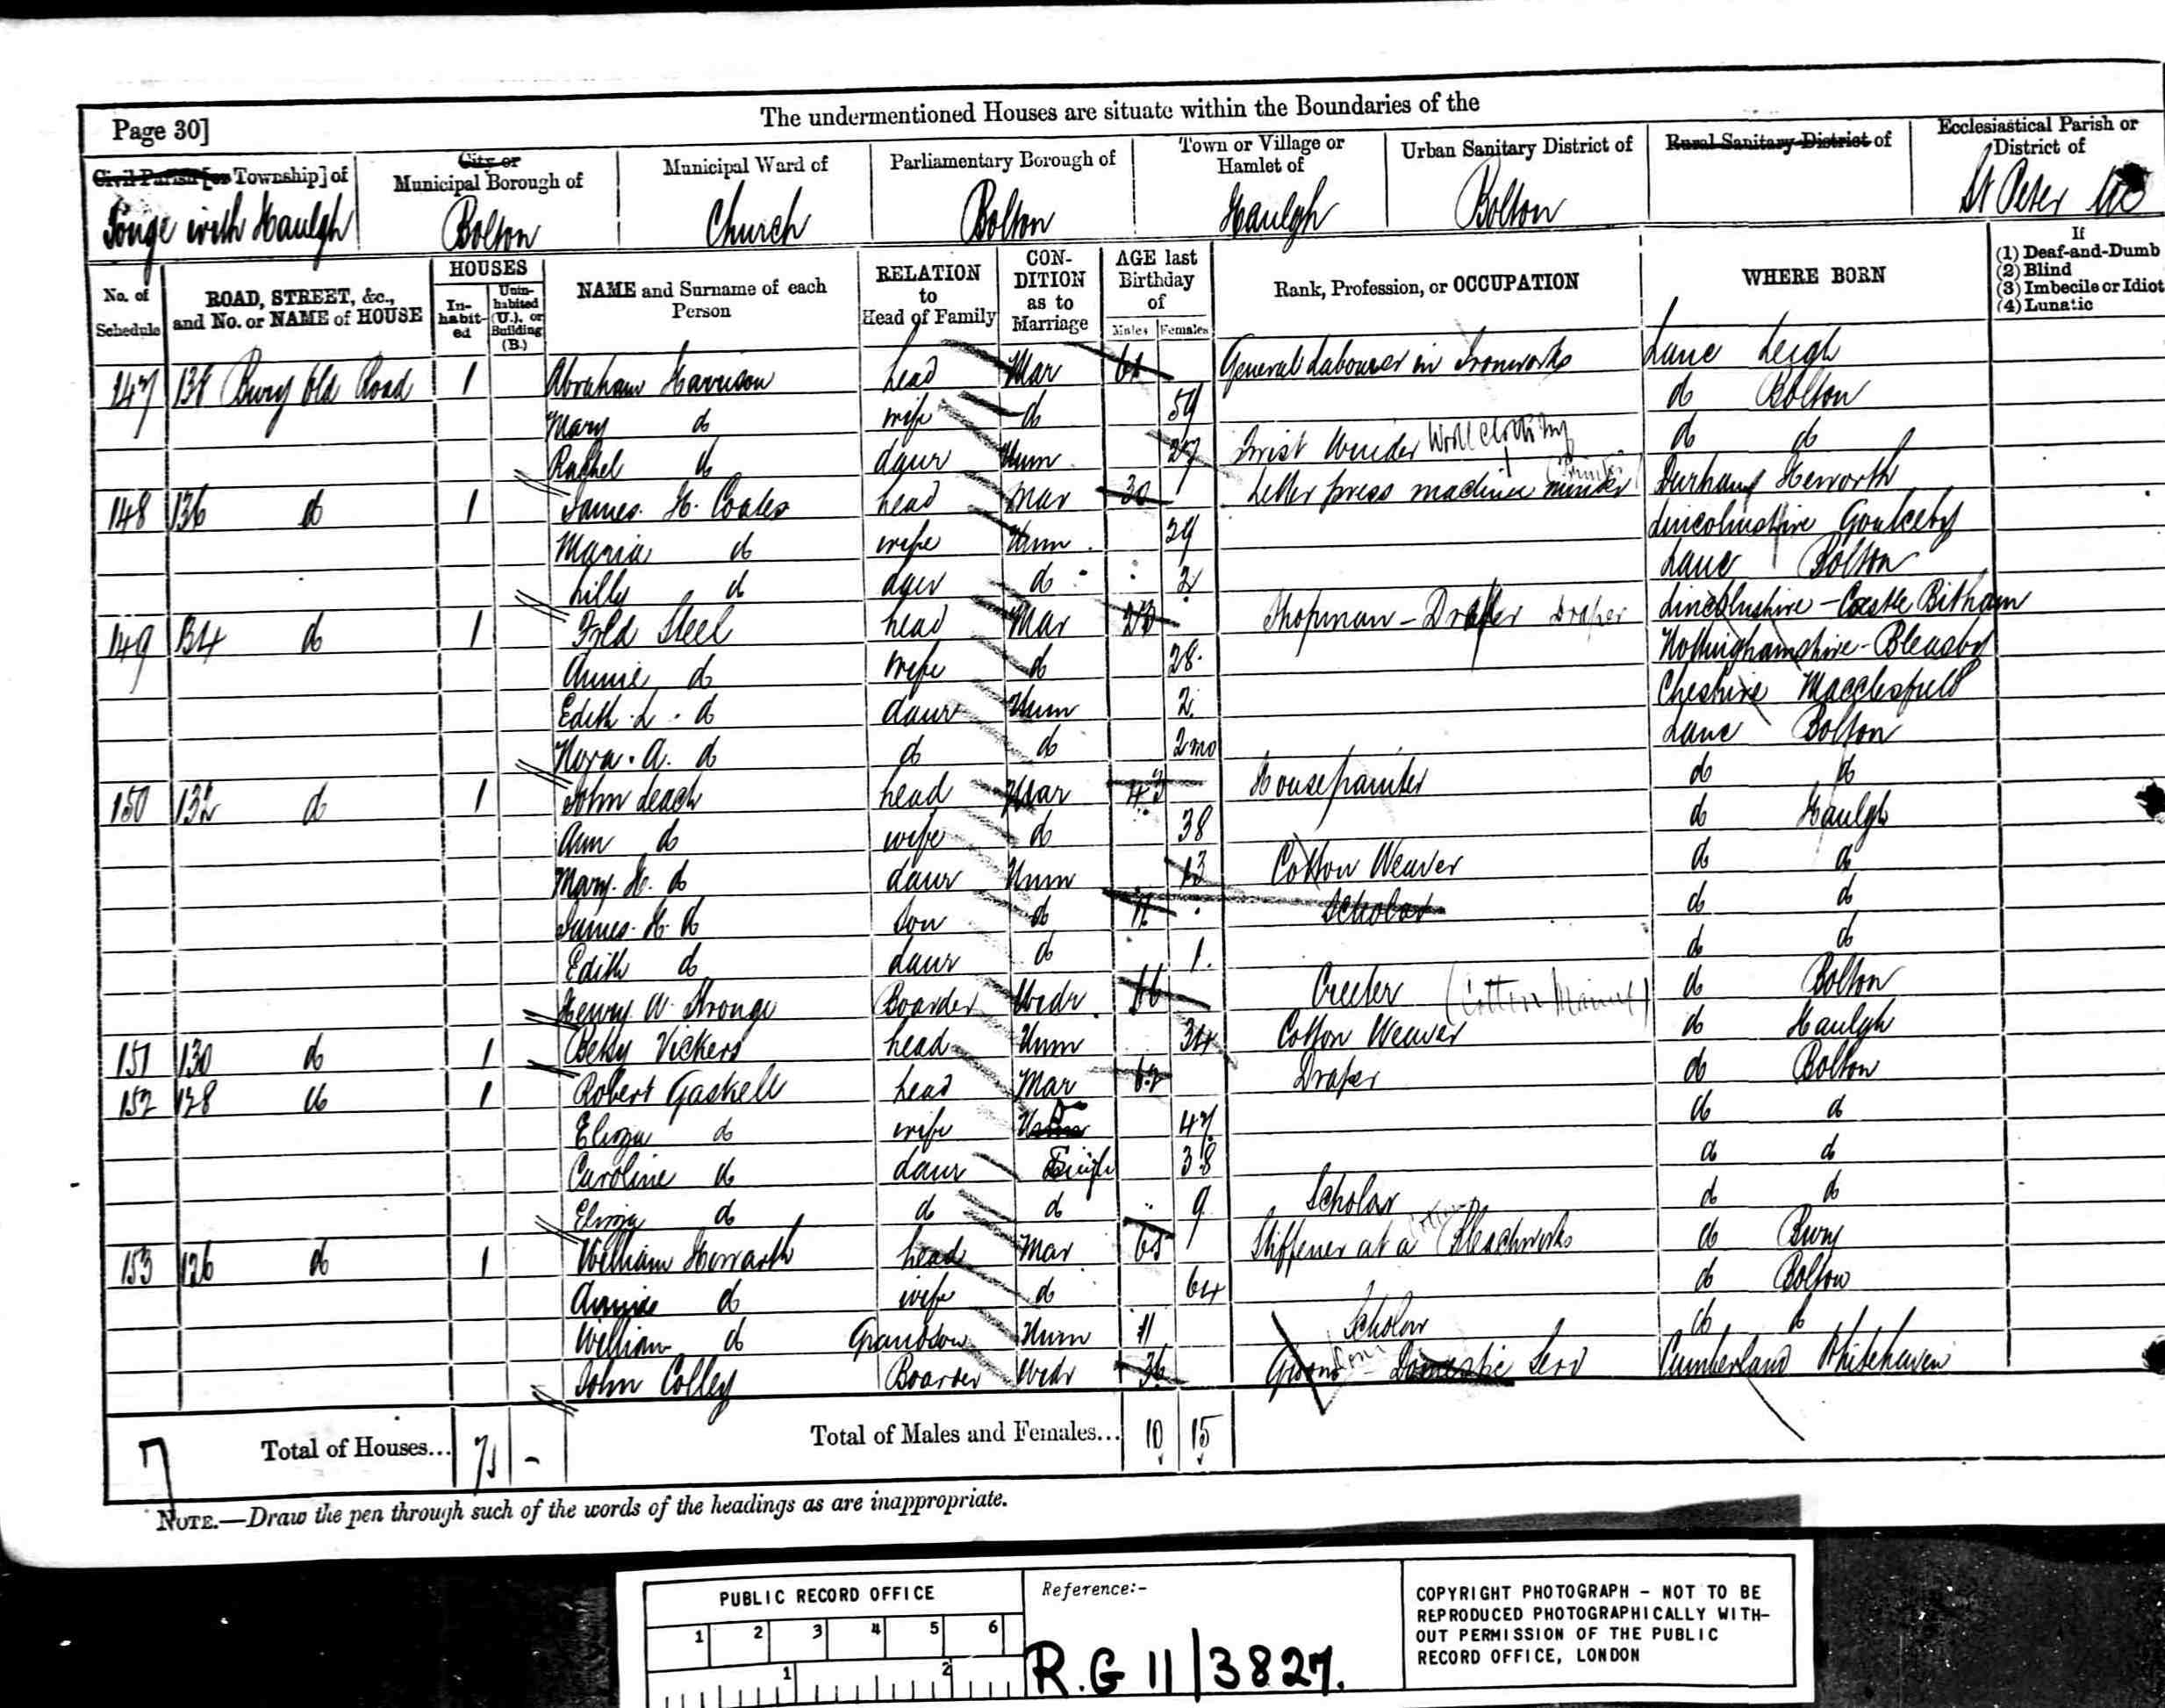 Page 30]
The undermentioned Houses are situate within the Boundaries of the
Civil Parish [or Township] of
City or Municipal Borough of
Municipal Ward of
Parliamentary Borough of
Town or Village or Hamlet of
Urban Sanitary District of
Rural Sanitary District of
Ecclesiastical Parish or District of
Tonge with Haulgh Bolton Church Bolton Haulgh Bolton St Peter
No. of Schedule
ROAD, STREET, &c., and No. or NAME of HOUSE
HOUSES
In-habit-ed
Unin-habited (U.), or Building (B.)
NAME and Surname of each Person
RELATION to Head of Family
CON-DITION as to Marriage
AGE last Birthday of
Males Females
Rank, Profession, or OCCUPATION
WHERE BORN
If
(1) Deaf-and-Dumb
(2) Blind
(3) Imbecile or Idiot
(4) Lunatic
147 138 Bury Old Road 1 Abraham Harrison head Mar 61 General Labourer in Ironworks Lanc Leigh
Mary do wife do 59 do Bolton
Rachel do daur Unm 27 Twist Winder do do
148 136 do 1 James H. Coates head Mar 30 Letter press machine minder Durham Heworth
Maria do wife Unm 29 Lincolnshire Goulceby
Lilly do daur do 2 Lanc Bolton
149 134 do 1 Fred Steel head Mar Shopman - Draper Draper Lincolnshire - Castle Bitham
Annie do wife do 28 Nottinghamshire - Bleasby
Edith L. do daur Unm 2 Cheshire Macclesfield
Nora A. do do do 2mo Lanc Bolton
150 132 do 1 John Leach head Mar 43 Housepainter do do
Ann do wife do 38 do Haulgh
Mary H. do daur Unm 13 Cotton Weaver do do
James H. do son do 11 Scholar do do
Edith do daur do 1 do do
Henry W. Boarder Widr 66 Creeler (Cotton Manuf) do Bolton
151 130 do 1 Betsy Vickers head Unm 34 Cotton Weaver do Haulgh
152 128 do 1 Robert Gaskell head Mar 62 Draper do Bolton
Eliza do wife do 47 do do
Caroline do daur Single 38 do do
Eliza do do do 9 Scholar do do
153 126 do 1 William Howarth head Mar 65 Stiffener at a Cotton Bleachworks do Bury
Annie do wife do 64 do Bolton
William do Grandson Unm 11 Scholar do do
John Colley Boarder Widr 36 Groom - Domestic Serv Cumberland Whitehaven
7 Total of Houses... 7 - Total of Males and Females... 10 15
NOTE.—Draw the pen through such of the words of the headings as are inappropriate.
PUBLIC RECORD OFFICE
1 2 3 4 5 6
1 2
Reference:-
R.G 11/3827.
COPYRIGHT PHOTOGRAPH - NOT TO BE
REPRODUCED PHOTOGRAPHICALLY WITH-
OUT PERMISSION OF THE PUBLIC
RECORD OFFICE, LONDON